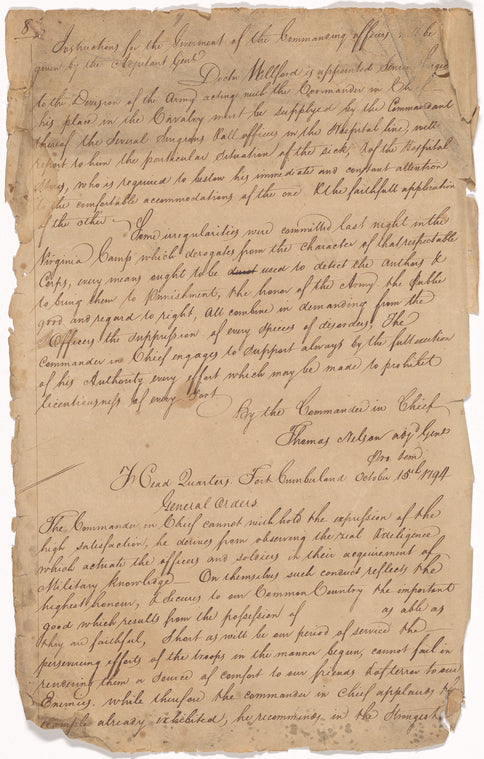 8
Instructions for the Goverment of the Commanding officers will be
given by the Adjutant Genl
Doctr Wellford is appointed Senior
to the Division of the Army acting with the Commander in Chief
his place in the Cavalry must be supplyed by the Commandant
thereof the Several Surgeons & all officers in the Hospital line, will
report to him the particular Situation of the sick, & of the Hospital
Stores, who is required to bestow his immediate and constant attention
to the comfortable accommodations of the one & the faithfull application
of the other
Some irregularities were committed last night in the
Virginia Camp which derogates from the character of that respectable
Corps, every means ought to be used to detect the Authors &
to bring them to Punishment, the honor of the Army the Public
good and regard to right, all combine in demanding from the
Officers the suppression of every species of disorder, The
Commander in Chief engages to Support always by the full action
of his Authority every effort which may be made to prohibit
licentiousness of every Sort
By the Commander in Chief
Thomas Nelson adjt Genl
Pro tem
Head Quarters Fort Cumberland October 15th 1794
General Orders
The Commander in Chief cannot withhold the expression of the
high satisfaction, he derives from observing the zeal & deligence
which actuate the officers and soldiers in their acquirement of
Military knowledge On themselves such conduct reflects the
highest honour, & Secures to our Common Country the important
good which results from the possession of as able as
they are faithful, Short as will be our period of service the
persevering efforts of the troops in the manner begun, cannot fail in
rendering them a source of comfort to our friends & of terror to our
Enemies. while therefore the commander in chief applauds the
example already exhibited, he recommends in the Stronges